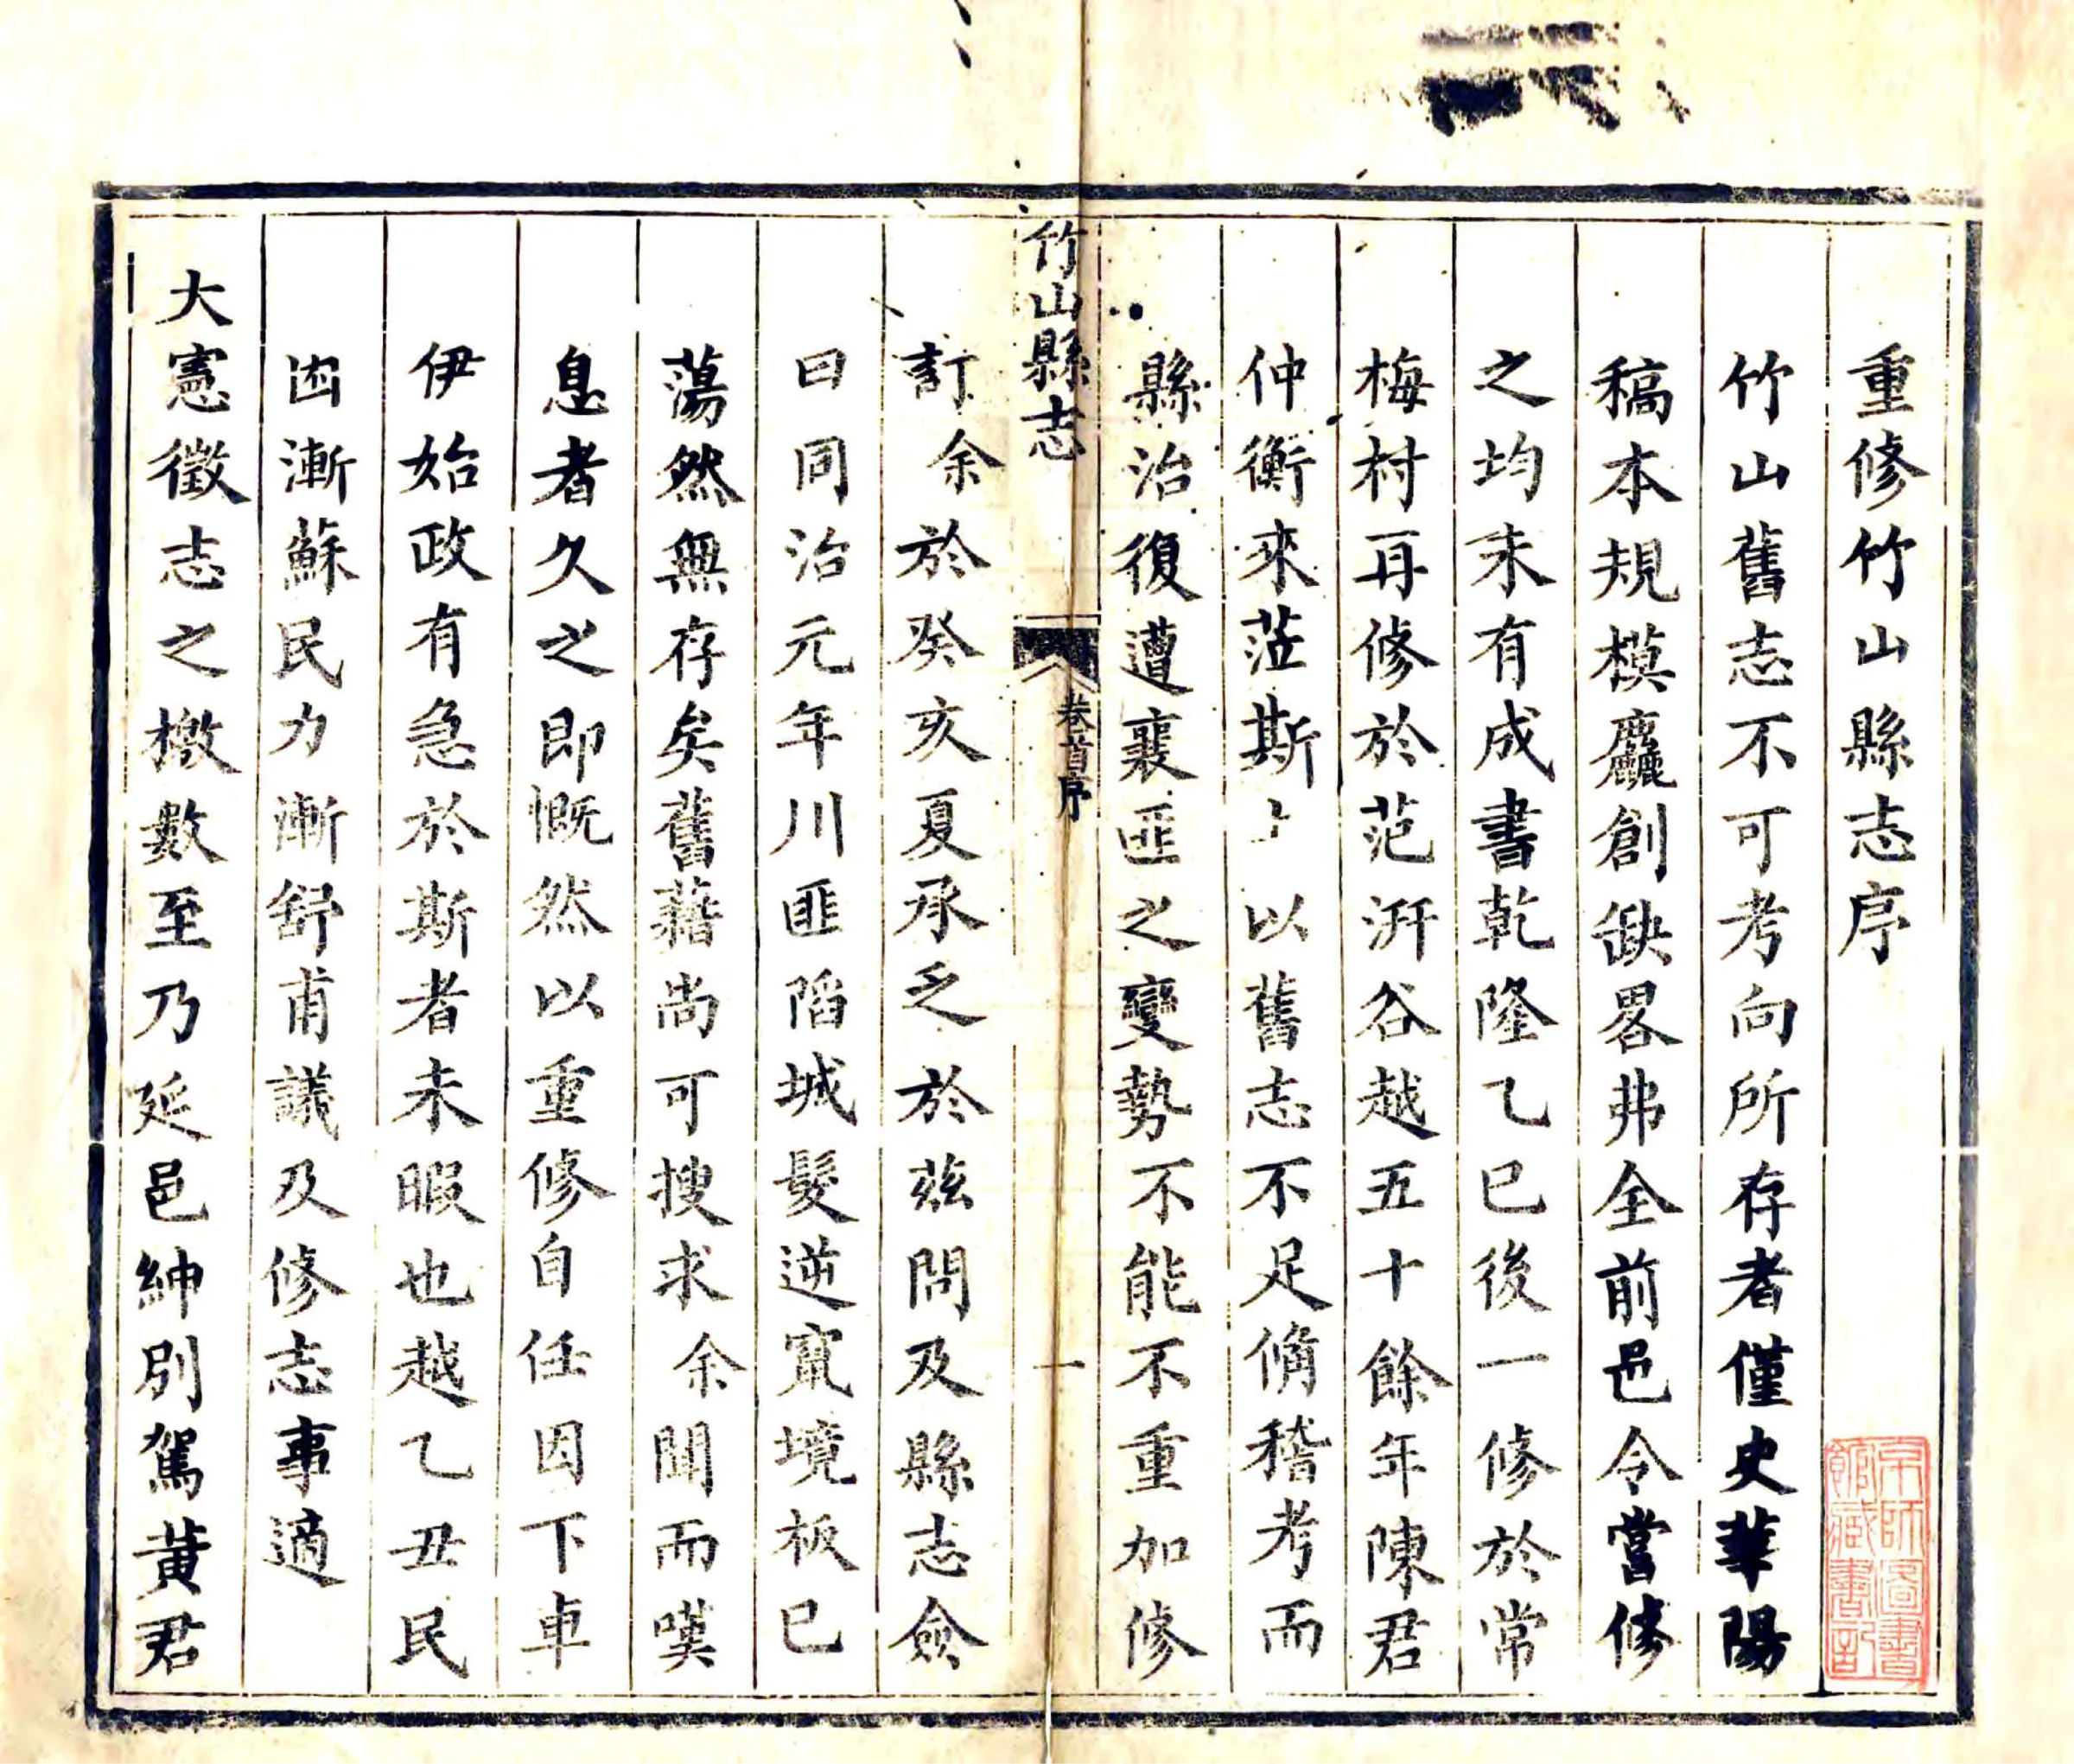 重修竹山縣志序
竹山舊志不可考向所存者僅史華陽
稿本規模麤創缺畧弗全前邑令當修
之均未有成書乾隆乙巳後一修於常
梅村再修於范汧谷越五十餘年陳君
仲衡來蒞斯土以舊志不足備稽考而
縣治復遭襄匪之變勢不能不重加修
竹山縣志
卷首序
一
訂余於癸亥夏承乏於茲問及縣志僉
曰同治元年川匪陷城髮逆竄境板已
蕩然無存矣舊藉尚可搜求余聞而嘆
息者久之即慨然以重修自任因下車
伊始政有急於斯者未暇也越乙丑民
困漸蘇民力漸舒甫議及修志事適
大憲徵志之檄數至乃延邑紳別駕黃君
京師圖書
館藏書記